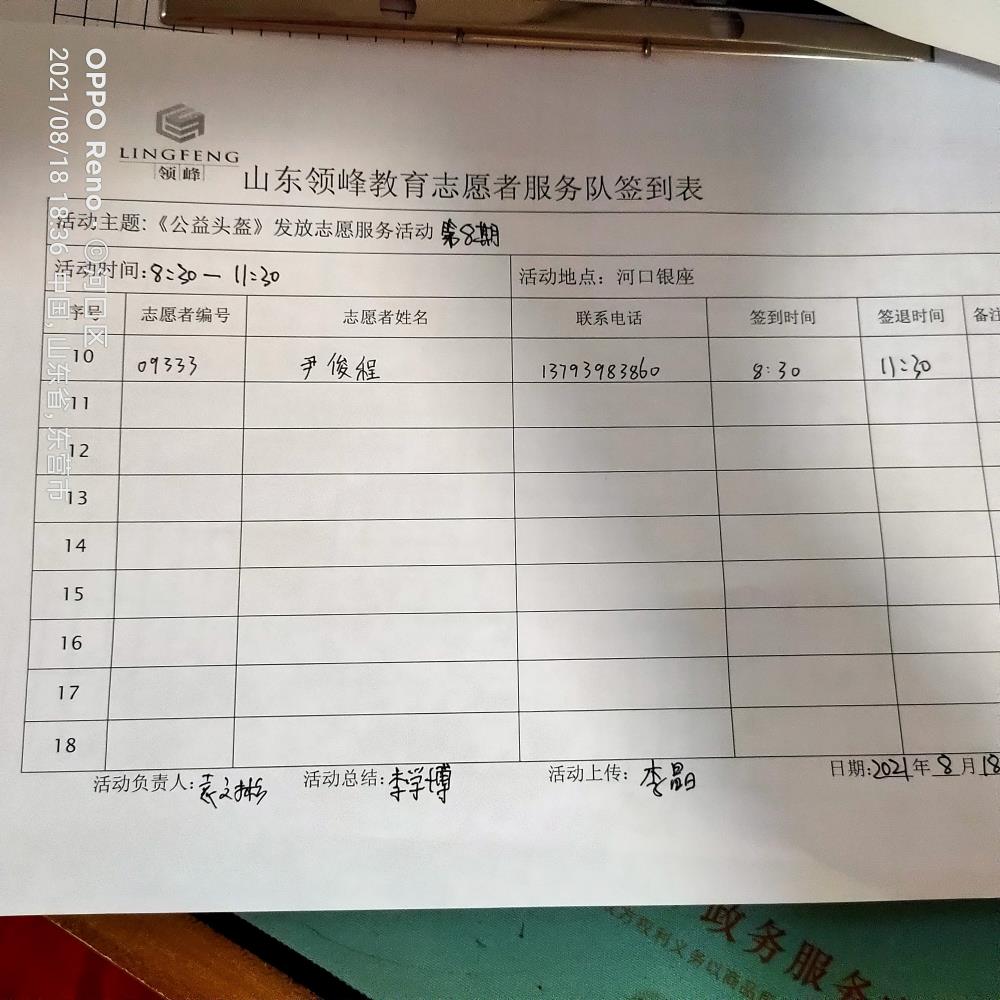 OPPO Reno ©河口区
2021/08/18 18:36 中国,山东省,东营市
LINGFENG
领峰
山东领峰教育志愿者服务队签到表
活动主题:《公益头盔》发放志愿服务活动 第8期
活动时间:8:30—11:30 活动地点：河口银座
序号 志愿者编号 志愿者姓名 联系电话 签到时间 签退时间 备注
10 09333 尹俊程 13793983860 8:30 11:30
11
12
13
14
15
16
17
18
活动负责人:袁文彬 活动总结:李学博 活动上传：李晶 日期:2021年8月18
政务服务